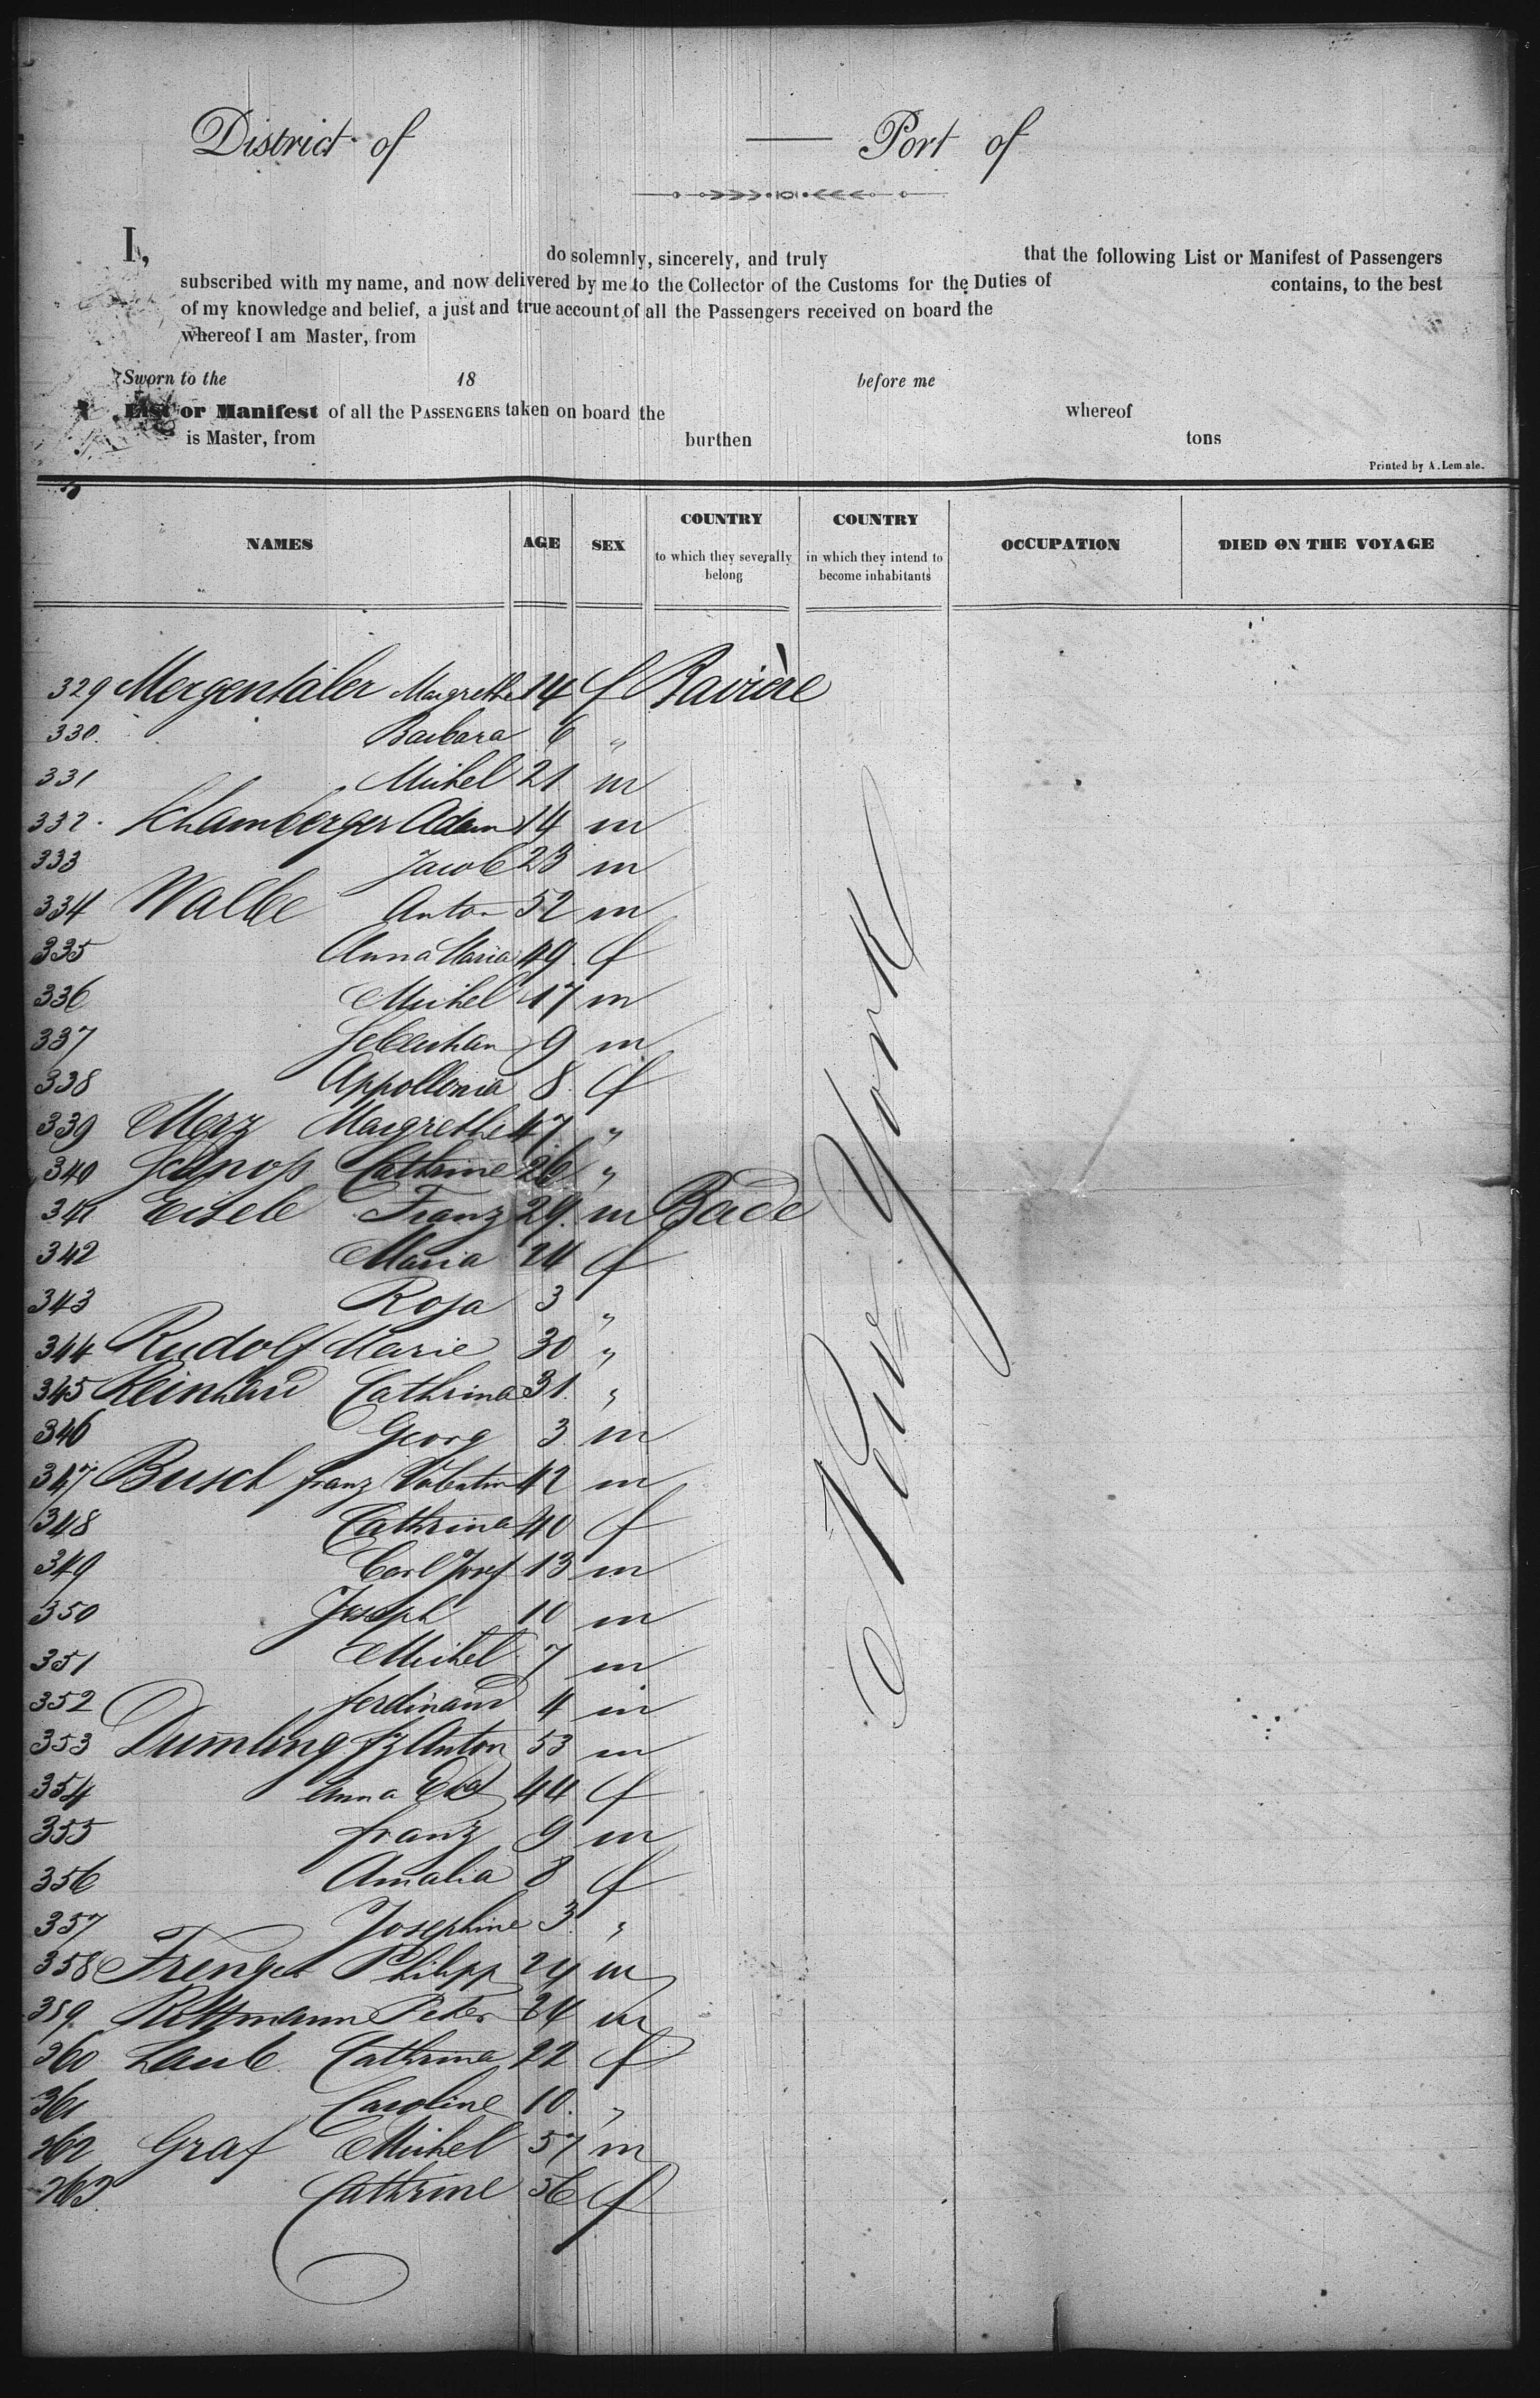 District of — Port of
I, do solemnly, sincerely, and truly that the following List or Manifest of Passengers
subscribed with my name, and now delivered by me to the Collector of the Customs for the Duties of contains, to the best
of my knowledge and belief, a just and true account of all the Passengers received on board the
whereof I am Master, from
Sworn to the 18 before me
List or Manifest of all the PASSENGERS taken on board the whereof
is Master, from burthen tons
Printed by A. Lemale.
NAMES AGE SEX COUNTRY to which they severally belong COUNTRY in which they intend to become inhabitants OCCUPATION DIED ON THE VOYAGE
329 Mergentäler Margrethe 14 f Bavière
330. Barbara 6 "
331 Michel 21 m
332. Schamberger Adam 14 m
333 Jacob 23 m
334 Walbe Anton 52 m
335 Anna Maria 49 f
336 Michel 17 m
337 Sebastian 9 m
338 Appollonia 8 f
339 Merz Margrethe 47 "
340 Cathrine 26 "
341 Eisele Franz 29. m Bade
342 Maria 24 f
343 Rosa 3 "
344 Rudolf Marie 30 "
345 Reinhard Cathrina 31. "
346 Georg 3 m
347 Busch Franz Valentin 42 m
348 Cathrina 40 f
349 Carl Josef 13 m
350 Joseph 10 m
351 Michel 7 m
352 Ferdinand 4 m
353 Dumling Fz Anton 53 m
354 Anna Eva 44 f
355 Franz 9 m
356 Amalia 8 f
357 Josephine 3 "
358 Frenger Philipp 24 m
359. Peter 24 m
360 Laub Cathrina 22 f
361 Caroline 10. "
362 Graf Michel 57 m
363. Cathrine 56 f
New York